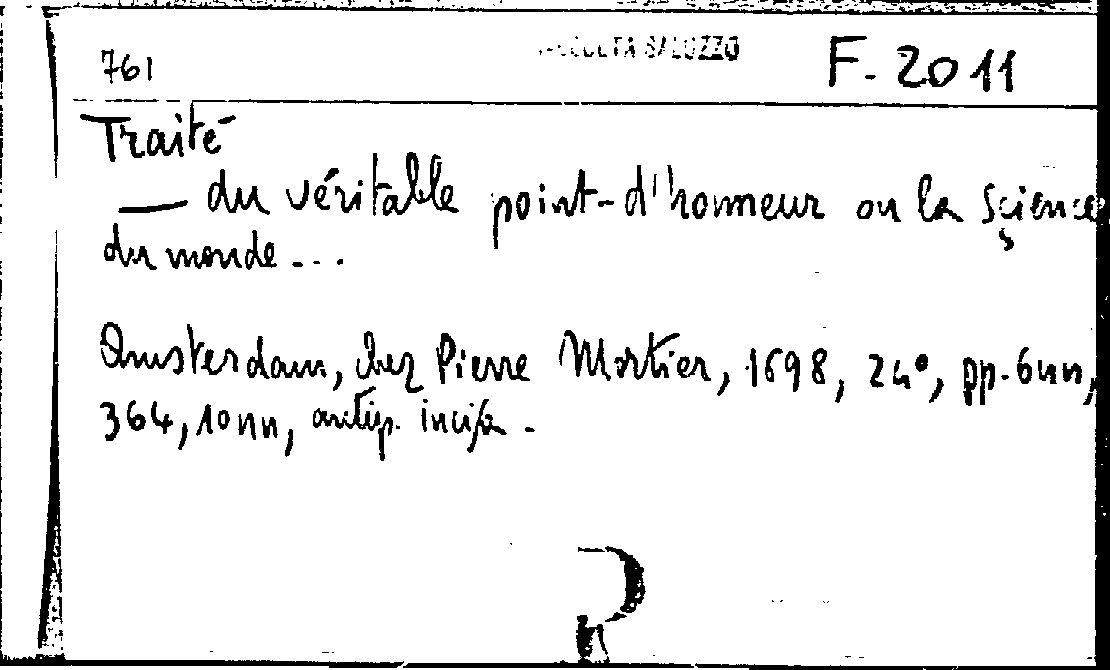 RACCOLTA SALUZZO
761 F. 2011
Traité
— du véritable point-d'honneur ou la sçience
du monde...
Amsterdam, chez Pierre Mortier, 1698, 24°, pp. 6nn,
364, 10nn, antip. incisa.